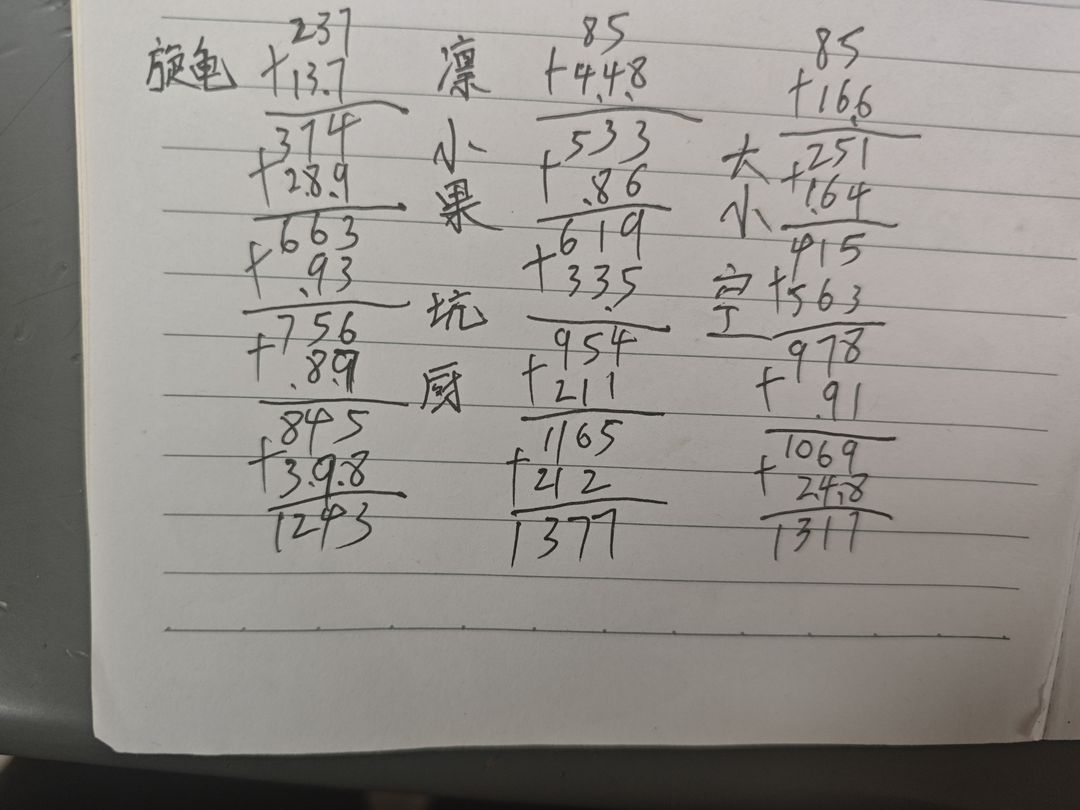 旋龟
237
+137
374
+289
663
+93
756
+89
845
+398
1243
凛小果
坑厨
85
+448
533
+86
619
+335
954
+211
1165
+212
1377
大小
空
85
+166
251
+164
415
+563
978
+91
1069
+248
1317